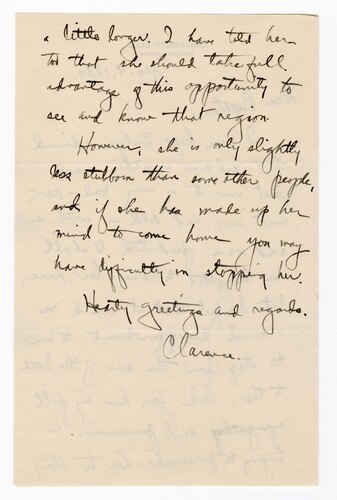 a little longer. I have told her
too that she should take full
advantage of this opportunity to
see and know that region.
However, she is only slightly
less stubborn than some other people,
and if she has made up her
mind to come home you may
have difficulty in stopping her.
Hearty greetings and regards.
Clarence.